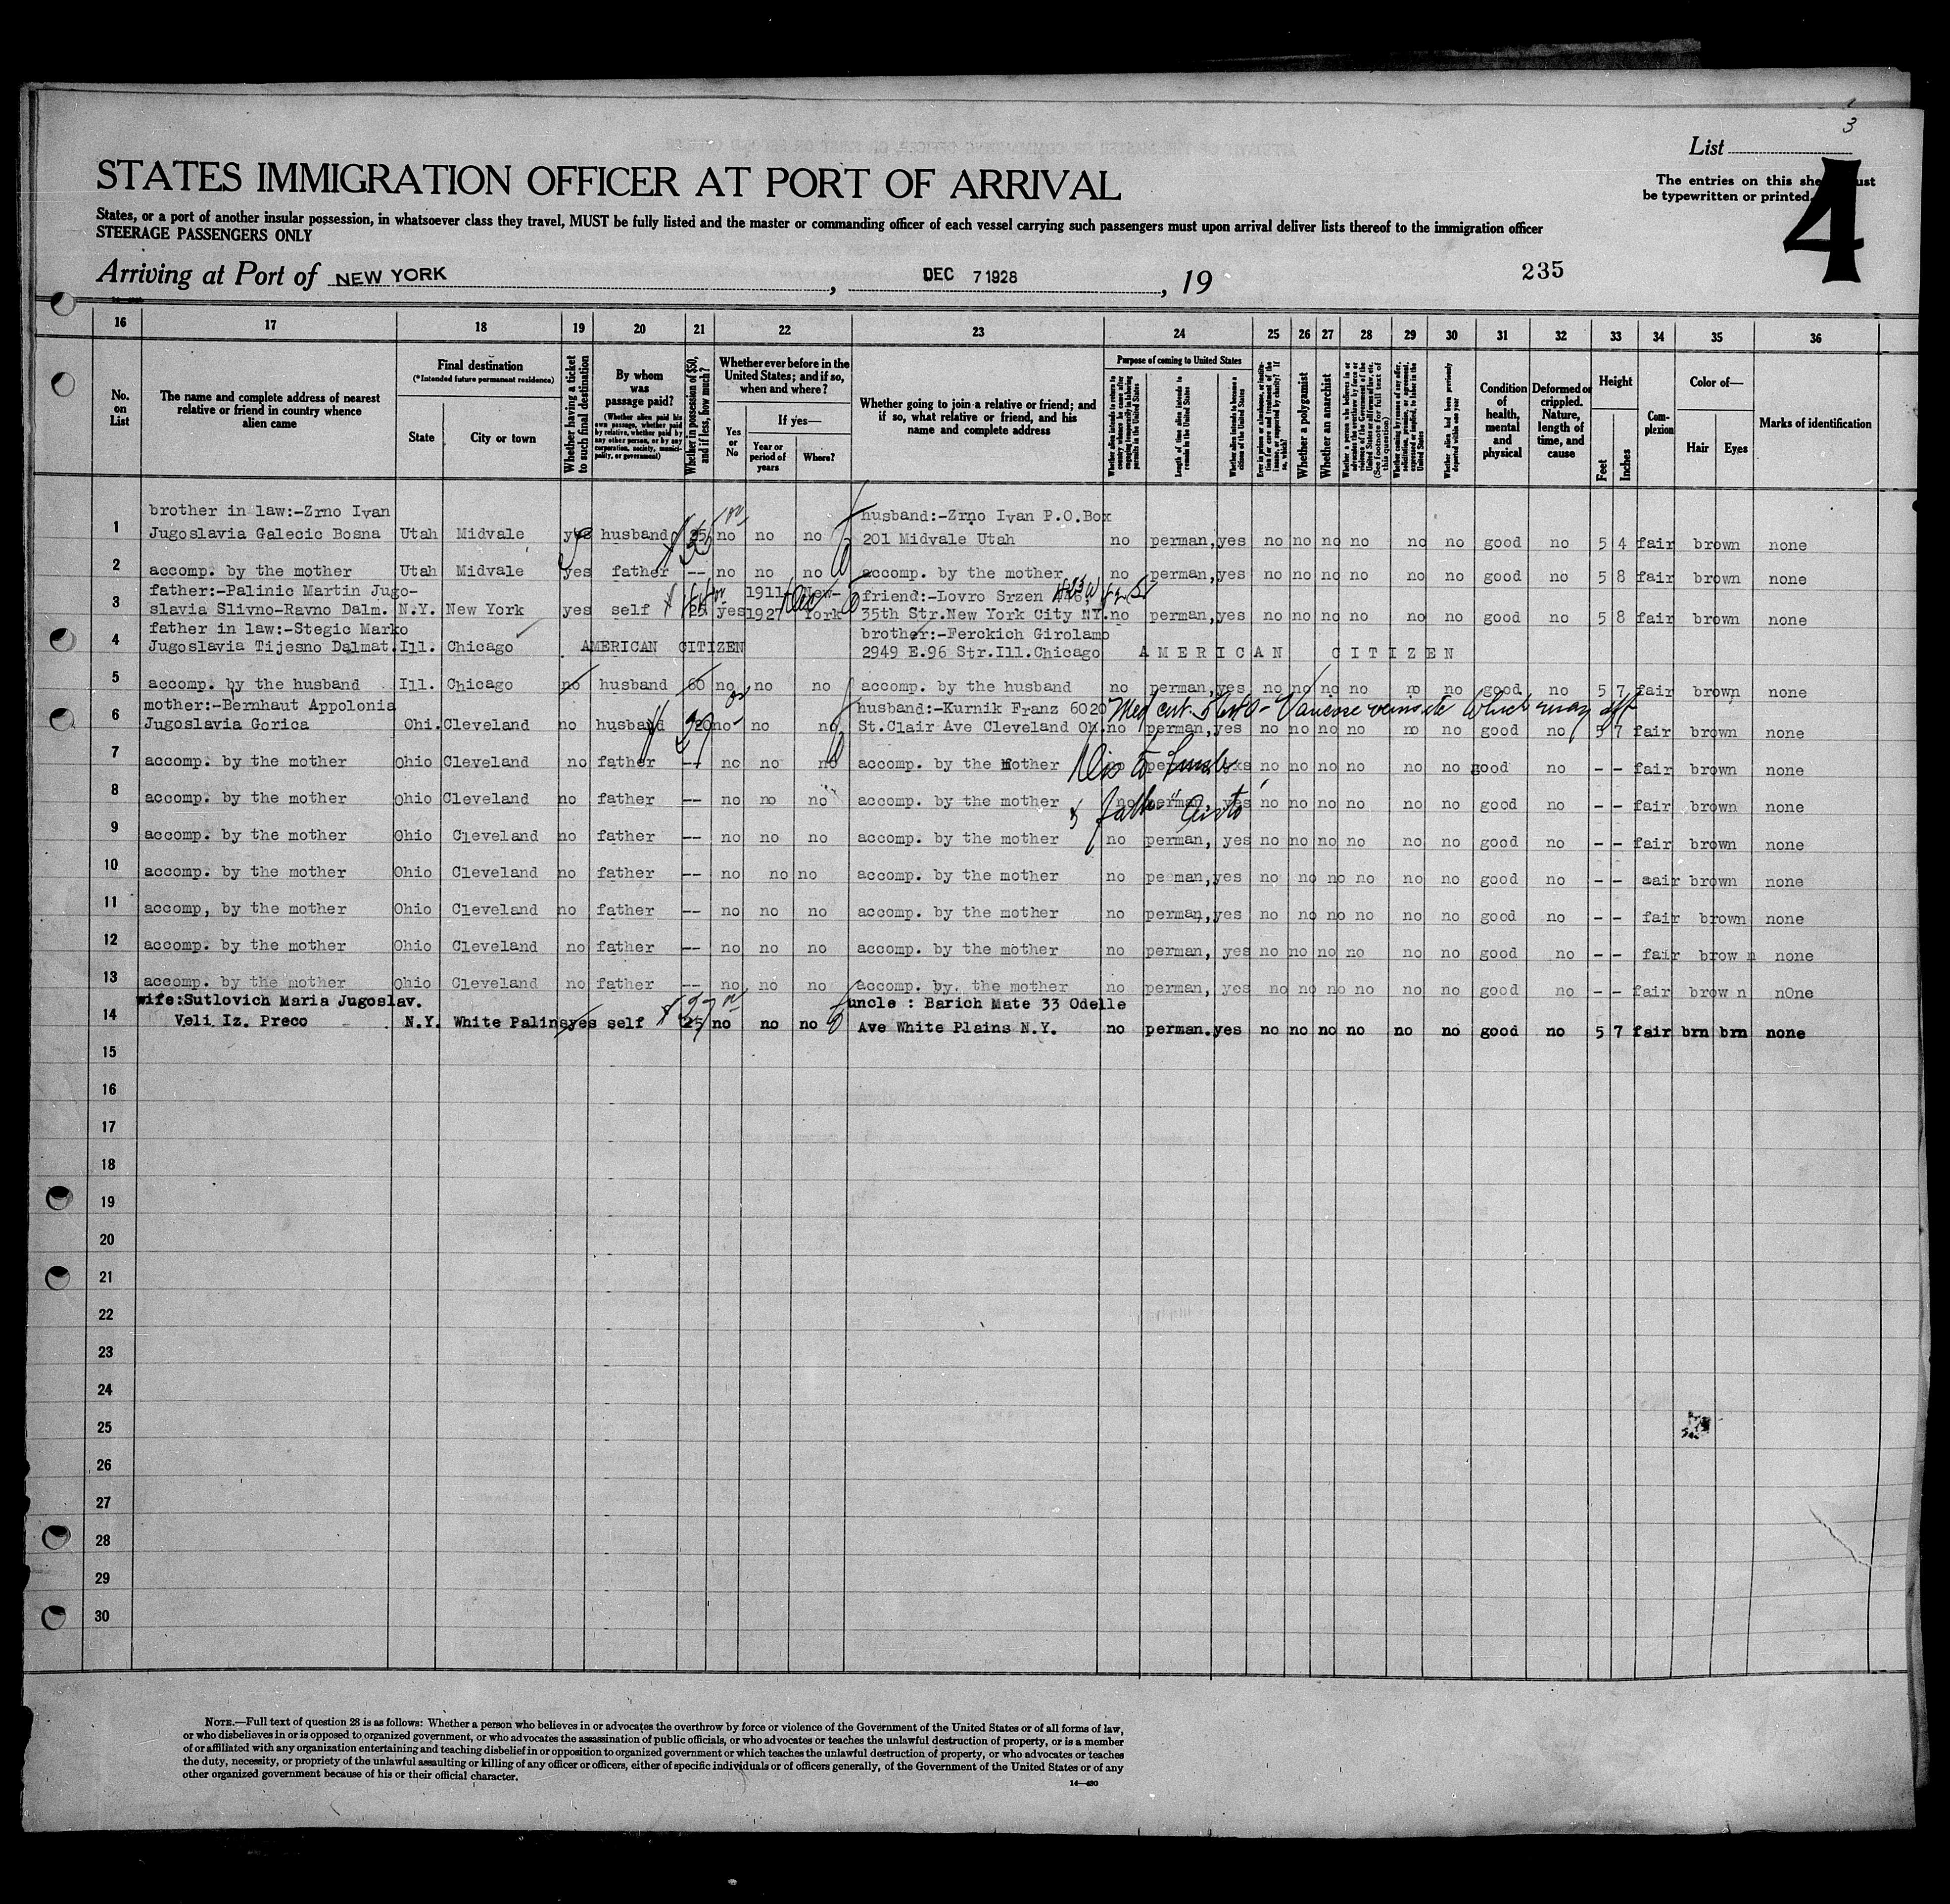 3
List
The entries on this sheet must
be typewritten or printed.
4
STATES IMMIGRATION OFFICER AT PORT OF ARRIVAL
States, or a port of another insular possession, in whatsoever class they travel, MUST be fully listed and the master or commanding officer of each vessel carrying such passengers must upon arrival deliver lists thereof to the immigration officer
STEERAGE PASSENGERS ONLY
Arriving at Port of NEW YORK , DEC 7 1928 , 19
235
16 17 18 19 20 21 22 23 24 25 26 27 28 29 30 31 32 33 34 35 36
No. on List
The name and complete address of nearest relative or friend in country whence alien came
Final destination
(*Intended future permanent residence)
State
City or town
Whether having a ticket to such final destination
By whom was passage paid?
(Whether alien paid his own passage, whether paid by relative, whether paid by any other person, or by any corporation, society, municipality, or government)
Whether in possession of $50, and if less, how much?
Whether ever before in the United States; and if so, when and where?
Yes or No
If yes—
Year or period of years
Where?
Whether going to join a relative or friend; and if so, what relative or friend, and his name and complete address
Purpose of coming to United States
Length of time alien intends to remain in the United States
Whether alien intends to become a citizen of the United States
Whether a polygamist
Whether an anarchist
Condition of health, mental and physical
Deformed or crippled. Nature, length of time, and cause
Height
Feet
Inches
Complexion
Color of—
Hair
Eyes
Marks of identification
brother in law:-Zrno Ivan husband:-Zrno Ivan P.O.Box
1 Jugoslavia Galecic Bosna Utah Midvale yes husband 25 no no no 201 Midvale Utah no perman, yes no no no no no no good no 5 4 fair brown none
2 accomp. by the mother Utah Midvale yes father -- no no no accomp. by the mother no perman, yes no no no no no no good no 5 8 fair brown none
father:-Palinic Martin Jugo- 1911 New- friend:-Lovro Srzen
3 slavia Slivno-Ravno Dalm. N.Y. New York yes self 25 yes 1927 York 35th Str.New York City NY. no perman, yes no no no no no no good no 5 8 fair brown none
father in law:-Stegic Marko brother:-Ferckich Girolamo
4 Jugoslavia Tijesno Dalmat. Ill. Chicago AMERICAN CITIZEN 2949 E.96 Str.Ill.Chicago AMERICAN CITIZEN
5 accomp. by the husband Ill. Chicago no husband 60 no no no accomp. by the husband no perman, yes no no no no no no good no 5 7 fair brown none
mother:-Bernhaut Appolonia husband:-Kurnik Franz 6020 Med cert. Varicose veins which may aff
6 Jugoslavia Gorica Ohi. Cleveland no husband 20 no no no St.Clair Ave Cleveland Oh. no perman, yes no no no no no no good no 5 7 fair brown none
7 accomp. by the mother Ohio Cleveland no father -- no no no accomp. by the mother no perman, yes no no no no no no good no - - fair brown none
8 accomp. by the mother Ohio Cleveland no father -- no no no accomp. by the mother no perman, yes no no no no no no good no - - fair brown none
9 accomp. by the mother Ohio Cleveland no father -- no no no accomp. by the mother no perman, yes no no no no no no good no - - fair brown none
10 accomp. by the mother Ohio Cleveland no father -- no no no accomp. by the mother no pe man, yes no no no no no no good no - - aair brown none
11 accomp, by the mother Ohio Cleveland no father -- no no no accomp. by the mother no perman, yes no no no no no no good no - - fair brown none
12 accomp. by the mother Ohio Cleveland no father -- no no no accomp. by the mother no perman, yes no no no no no no good no - - fair brow n none
13 accomp. by the mother Ohio Cleveland no father -- no no no accomp. by. the mother no perman, yes no no no no no no good no - - fair brow n nOne
wife:Sutlovich Maria Jugoslav. uncle : Barich Mate 33 Odelle
14 Veli Iz. Preco N.Y. White Palins yes self 25 no no no Ave White Plains N.Y. no perman. yes no no no no no no good no 5 7 fair brn brn none
15
16
17
18
19
20
21
22
23
24
25
26
27
28
29
30
NOTE.—Full text of question 28 is as follows: Whether a person who believes in or advocates the overthrow by force or violence of the Government of the United States or of all forms of law,
or who disbelieves in or is opposed to organized government, or who advocates the assassination of public officials, or who advocates or teaches the unlawful destruction of property, or is a member
of or affiliated with any organization entertaining and teaching disbelief in or opposition to organized government or which teaches the unlawful destruction of property, or who advocates or teaches
the duty, necessity, or propriety of the unlawful assaulting or killing of any officer or officers, either of specific individuals or of officers generally, of the Government of the United States or of any
other organized government because of his or their official character.
14—430